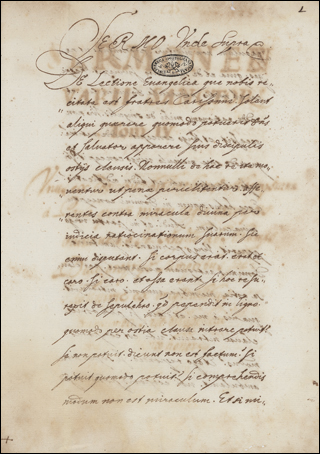 1
SERMO Unde Supra
De Lectione Evangelica que nobis re
citata est fratres Carissimi Solent
aliqui querere quomodo
et Salvator apparere suis discipulis
ostiis clausis. Nonnulli de hac re ita mo
uentur ut pene periclitentur affe
rentes contra miracula diuina prei
iudicia ratiocinationum suarum. Sic
enim disputant. Si corpus erat
caro. Si caro. et ossa erant. Si hoc resur
rexit de sepulchro. qd pependit in ligno
quomodo per ostia clausa intrare potuit.
Si non potuit. dicunt non est factum. Si
potuit quomodo potuit. Si comprehendis
modum non est miraculum. Et si mi.